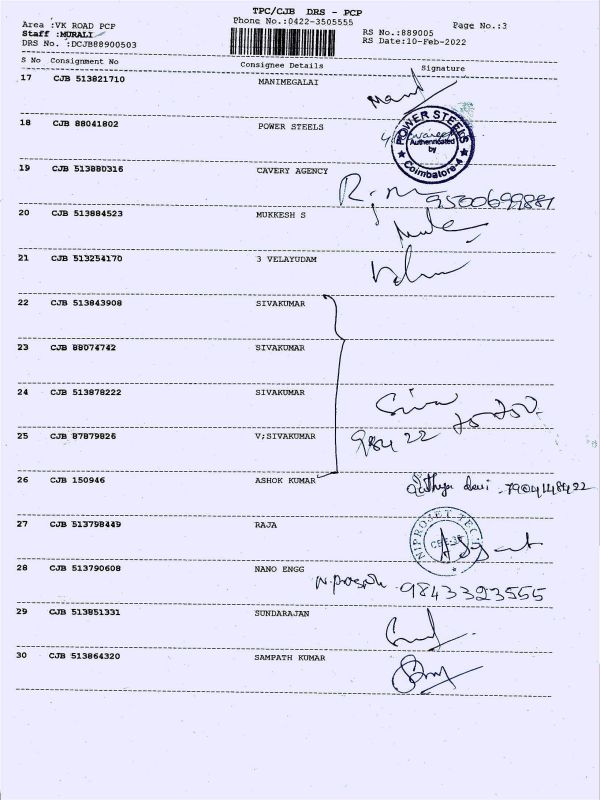 TPC/CJB DRS - PCP
Area :VK ROAD PCP Phone No.:0422-3505555 Page No.:3
Staff :MURALI RS No.:889005
DRS No. :DCJB88900503 RS Date:10-Feb-2022
S No Consignment No Consignee Details Signature
17 CJB 513821710 MANIMEGALAI
18 CJB 88041802 POWER STEELS
POWER STEELS
Authenticated
by
Coimbatore-4
19 CJB 513880316 CAVERY AGENCY
9500699881
20 CJB 513884523 MUKKESH S
21 CJB 513254170 3 VELAYUDAM
22 CJB 513843908 SIVAKUMAR
23 CJB 88074742 SIVAKUMAR
24 CJB 513878222 SIVAKUMAR
Siva
25 CJB 87879826 V;SIVAKUMAR
984 22 70700
26 CJB 150946 ASHOK KUMAR
devi - 7904148422
27 CJB 513798449 RAJA
28 CJB 513790608 NANO ENGG
9843323555
29 CJB 513851331 SUNDARAJAN
30 CJB 513864320 SAMPATH KUMAR